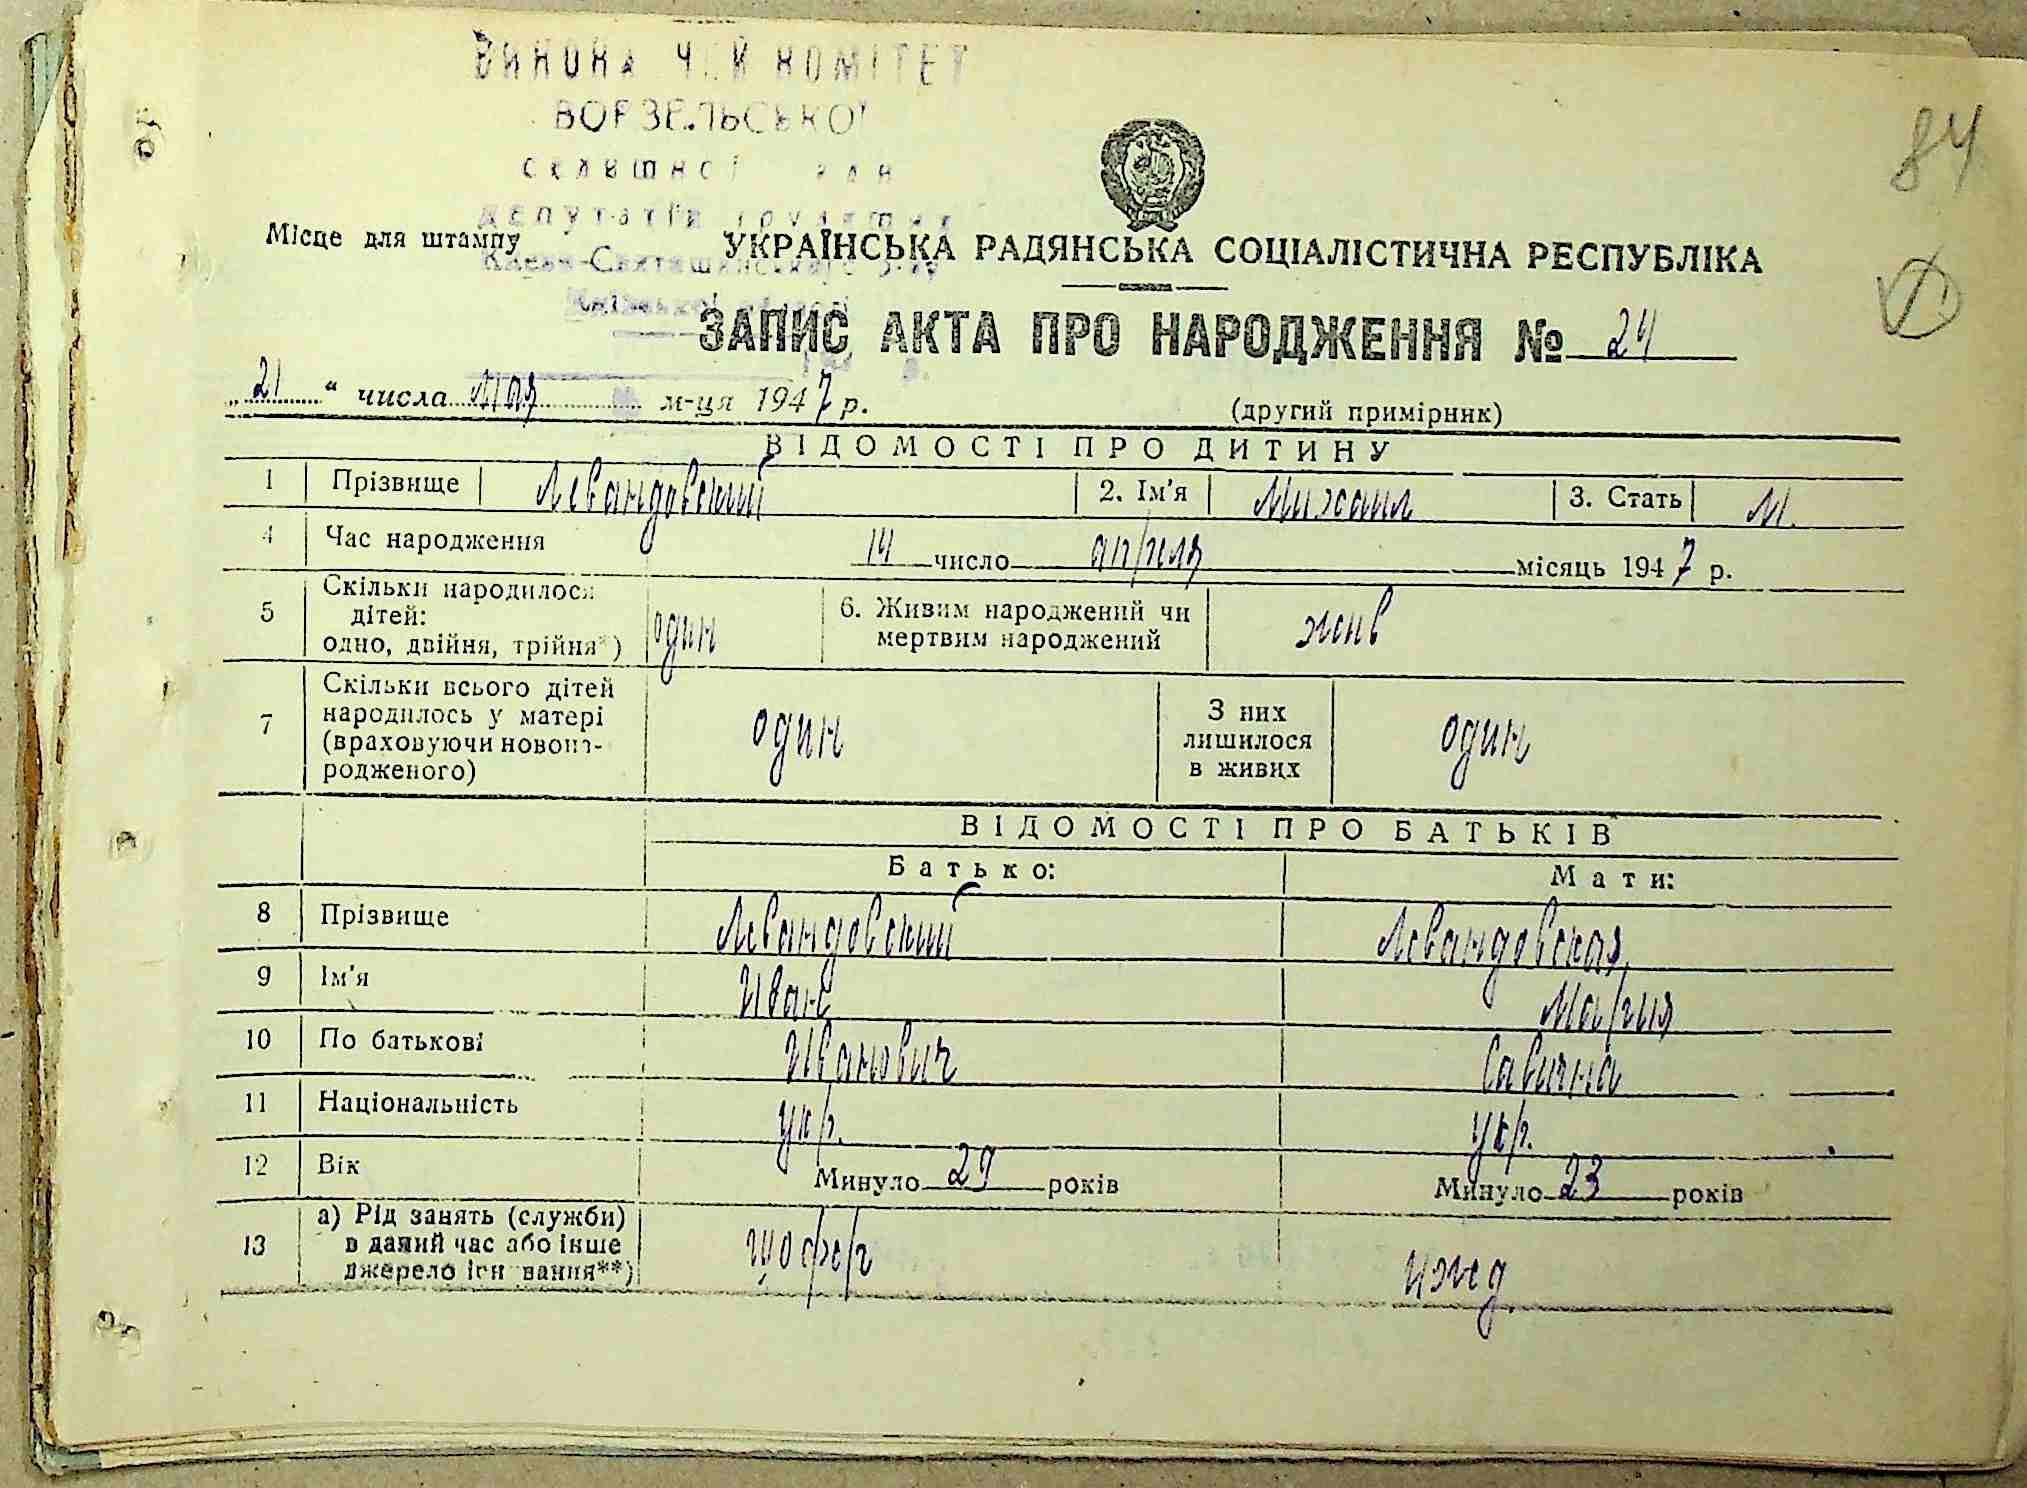 ВИКОНАВЧИЙ КОМІТЕТ
ВОРЗЕЛЬСЬКОЇ
селищної ради
депутатів трудящих
Києво-Святошинського р-ну
Київської області
84
Місце для штампу
УКРАЇНСЬКА РАДЯНСЬКА СОЦІАЛІСТИЧНА РЕСПУБЛІКА
ЗАПИС АКТА ПРО НАРОДЖЕННЯ № 24
„21“ числа мая м-ця 1947 р.
(другий примірник)
ВІДОМОСТІ ПРО ДИТИНУ
1 Прізвище Левандовский 2. Ім'я Михаил 3. Стать М.
4 Час народження 14 число апреля місяць 1947 р.
5 Скільки народилося дітей: одно, двійня, трійня*) один 6. Живим народжений чи мертвим народжений жив
7 Скільки всього дітей народилось у матері (враховуючи новона-родженого) один З них лишилося в живих один
ВІДОМОСТІ ПРО БАТЬКІВ
Батько: Мати:
8 Прізвище Левандовский Левандовская
9 Ім'я Иван Мария
10 По батькові Иванович Савична
11 Національність укр. укр.
12 Вік Минуло 29 років Минуло 23 років
13 а) Рід занять (служби) в даний час або інше джерело існування**) шофер ижд.